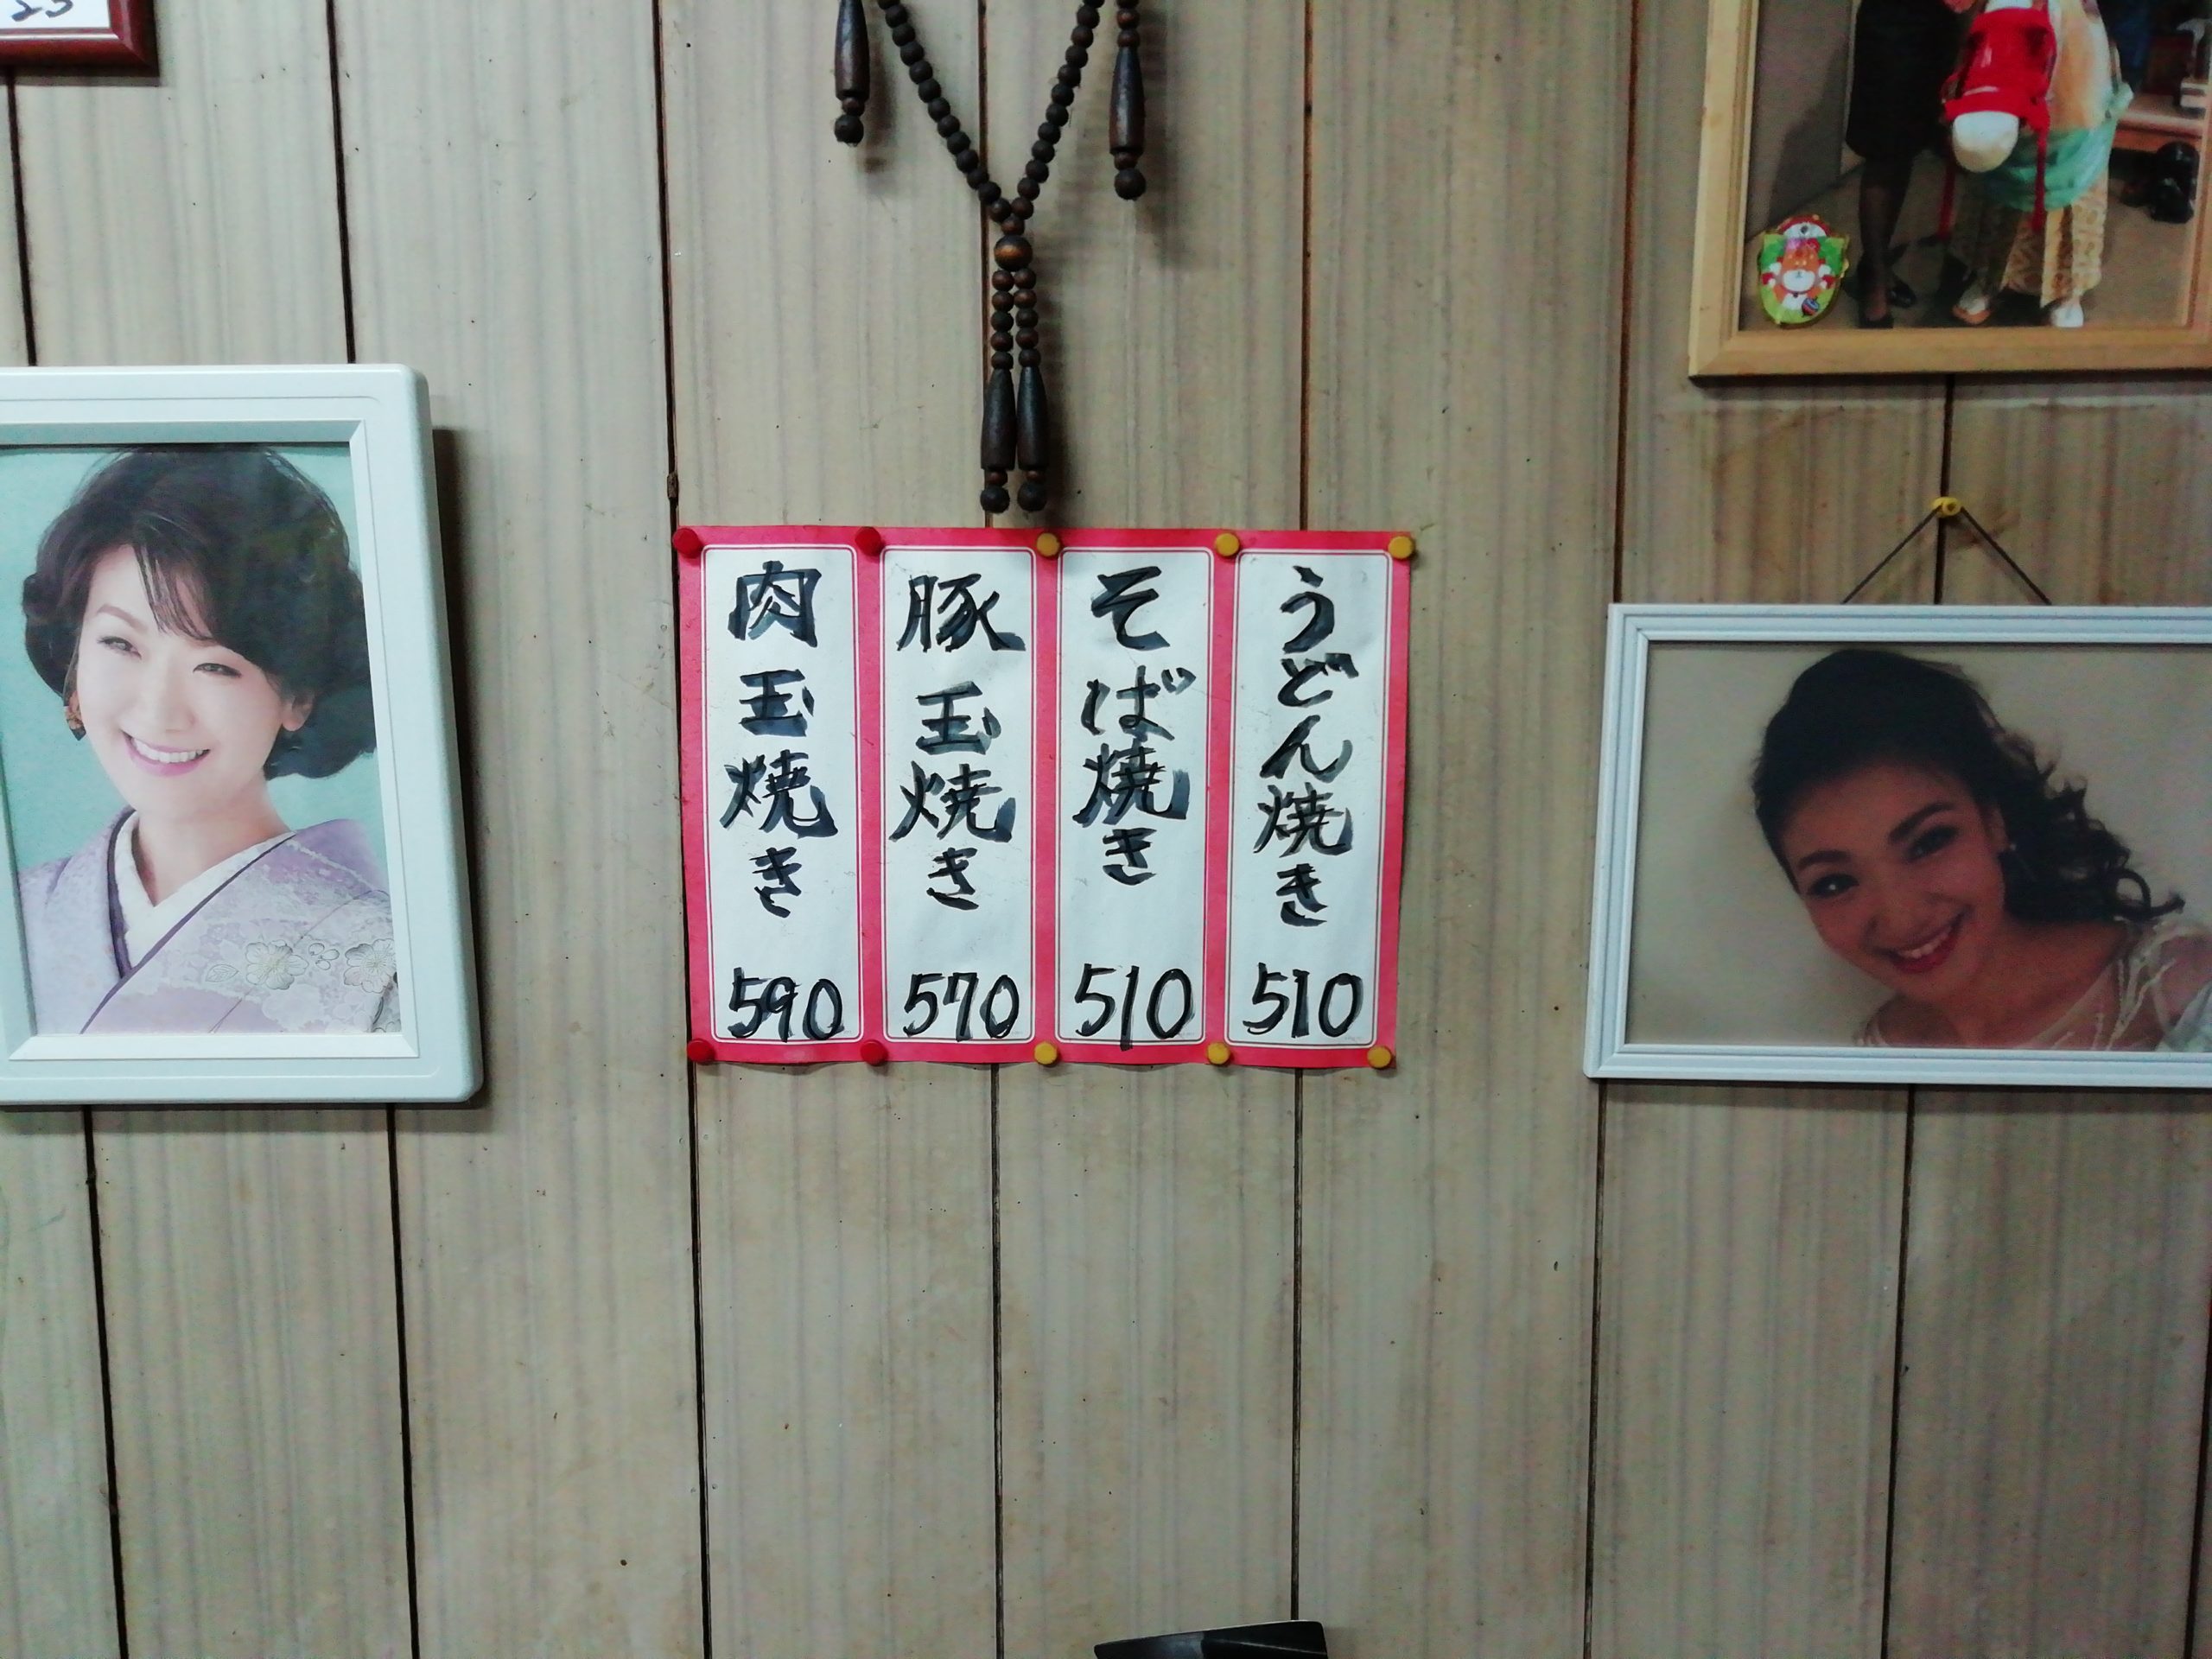 うどん焼き 510
そば焼き 510
豚玉焼き 570
肉玉焼き 590